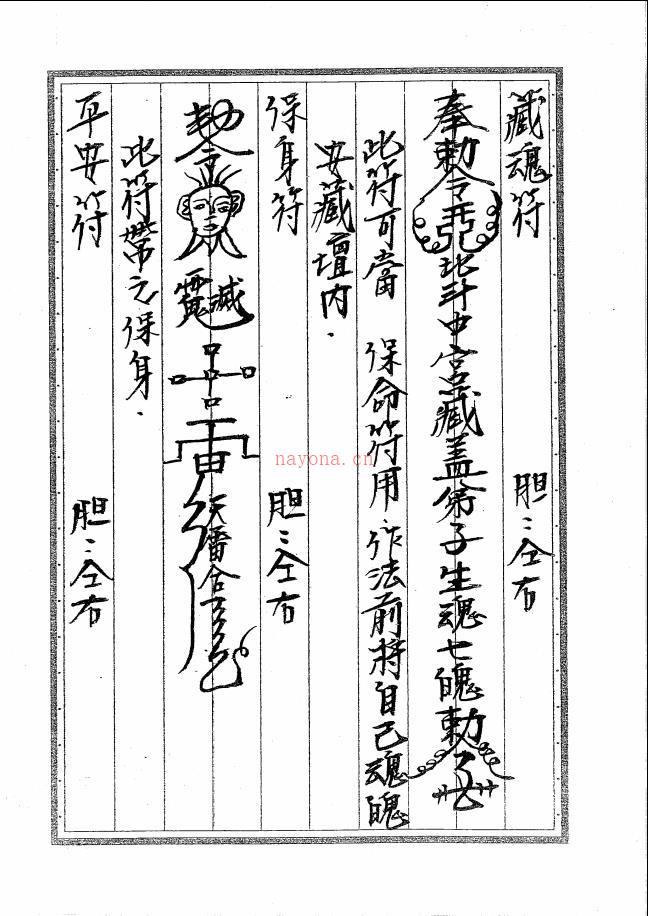 藏魂符
胆：仝右
奉勅令 北斗中宮藏盖弟子生魂七魄勅
此符可當 保命符用.作法前將自己魂魄
安藏壇内.
保身符
胆：仝右
勅令 雷
此符帶之保身.
平安符
胆：仝右
nayona.cn